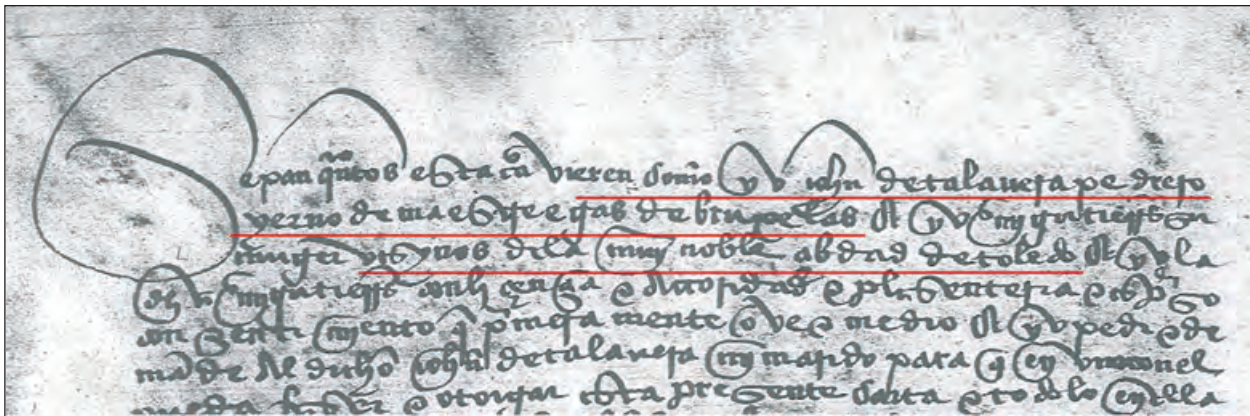 Sepan qntos esta cta vieren como yo iohn de talavera pedrero
yerno de maestre egas de bruxelas E yo mª gutierrs su
muger vºs ynos dela muy noble cibdad de toledo E yo la
dha mª gutierrs con liçençia e actoridad e plasenteria e
consentimiento q primera mente ove e medio E yo pedi e de
mande Al dicho iohn de talavera my marido para q en uno con el
pueda faser e otorgar esta presente carta e todo lo enella